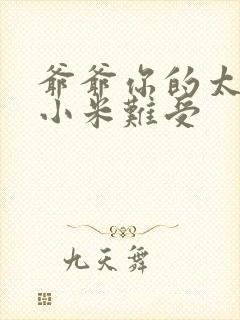 爺爺你的太
小米難受
九天舞